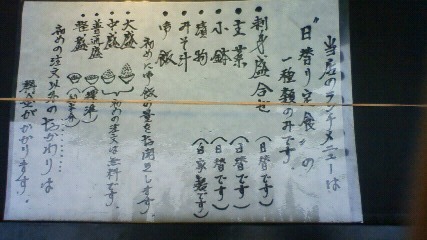 当店のランチメニューは
"日替り定食"の
一種類のみです。
・刺身盛合せ（日替です）
・主菜（日替です）
・小鉢（日替です）
・漬物（自家製です）
・みそ汁
・御飯
初めに御飯の量をお聞きします。
・大盛
・中盛（初めの注文は無料です）
・普通盛（標準）
・軽盛
初めの注文以外のおかわりは
料金がかかります。